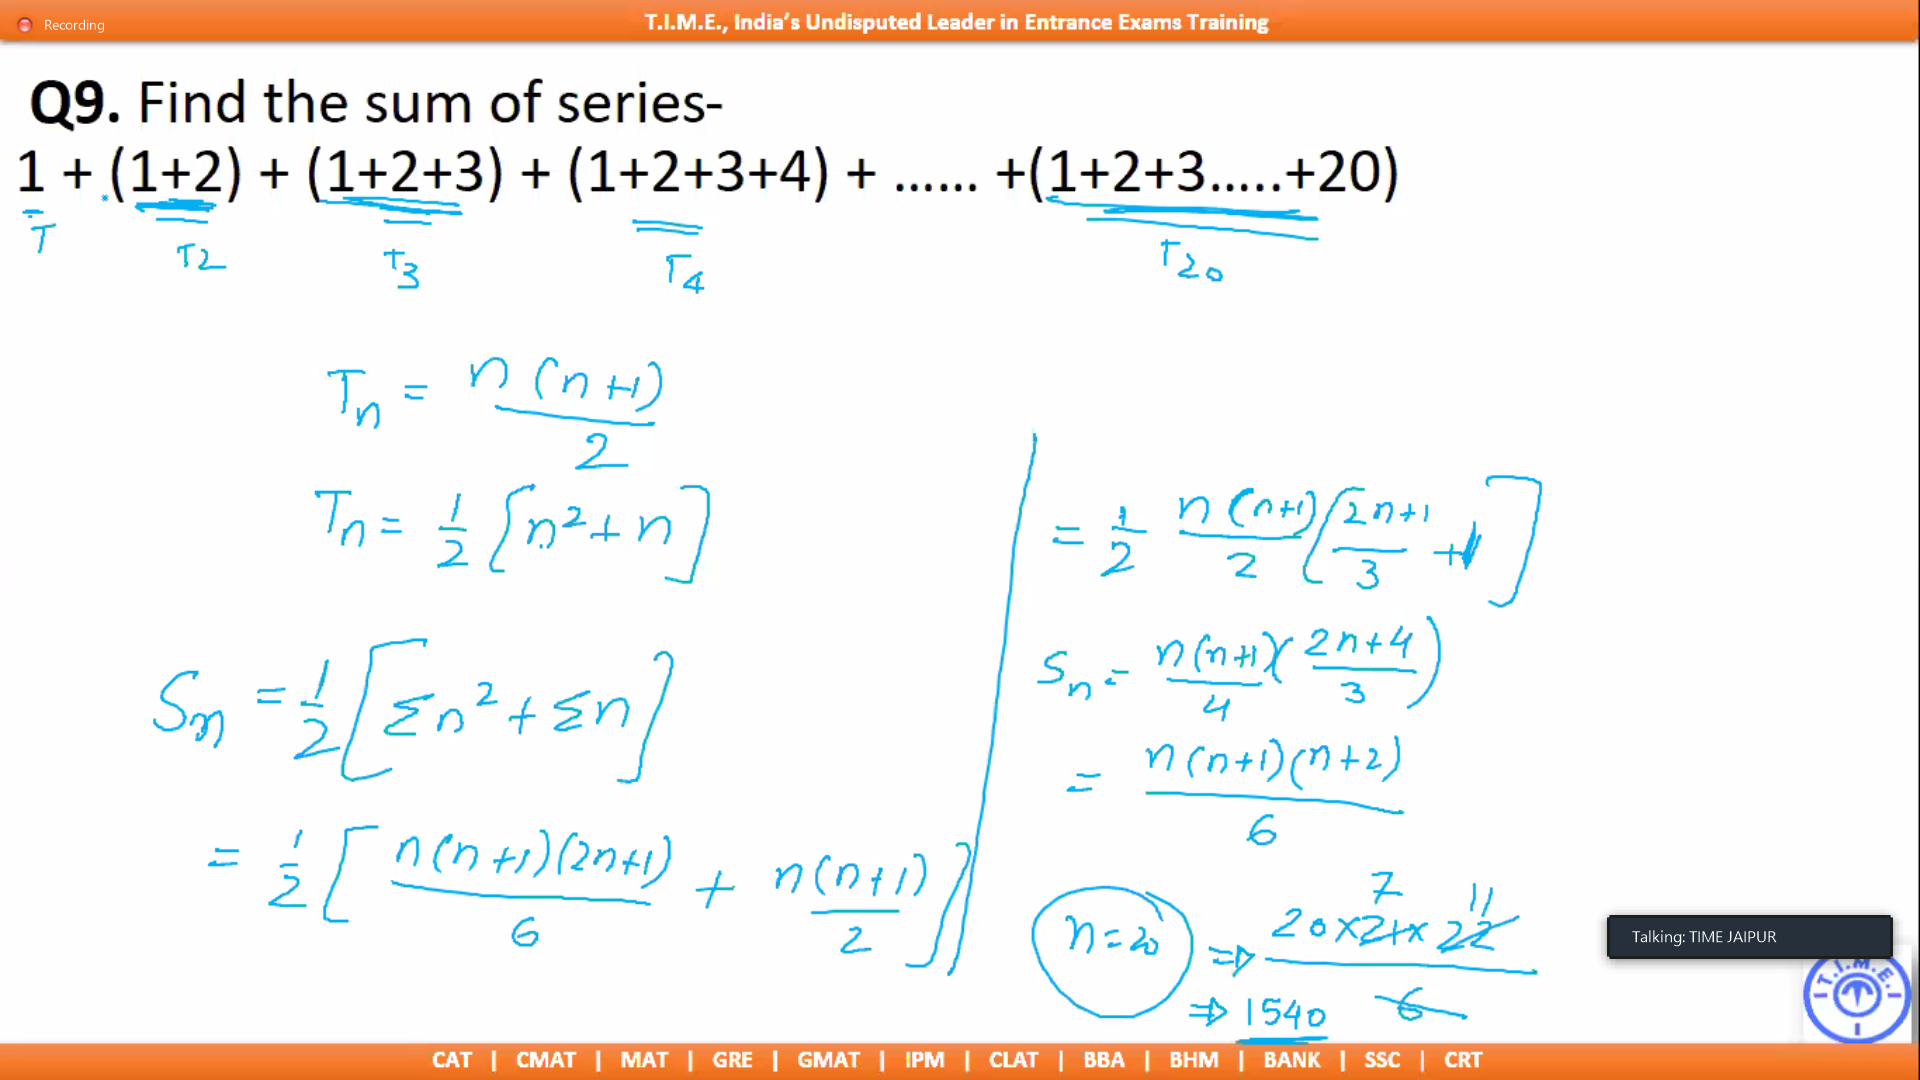 Recording
T.I.M.E., India's Undisputed Leader in Entrance Exams Training
Q9. Find the sum of series-
1 + (1+2) + (1+2+3) + (1+2+3+4) + ...... +(1+2+3.....+20)
T T2 T3 T4 T20
Tn = n(n+1)/2
Tn = 1/2 [n²+n]
Sn = 1/2 [Σn² + Σn]
= 1/2 [n(n+1)(2n+1)/6 + n(n+1)/2]
= 1/2 n(n+1)/2 [2n+1/3 +1]
Sn = n(n+1)/4 (2n+4/3)
= n(n+1)(n+2)/6
7 11
n=20 ⇒ 20×21×22/6
⇒ 1540
Talking: TIME JAIPUR
T.I.M.E.
CAT | CMAT | MAT | GRE | GMAT | IPM | CLAT | BBA | BHM | BANK | SSC | CRT